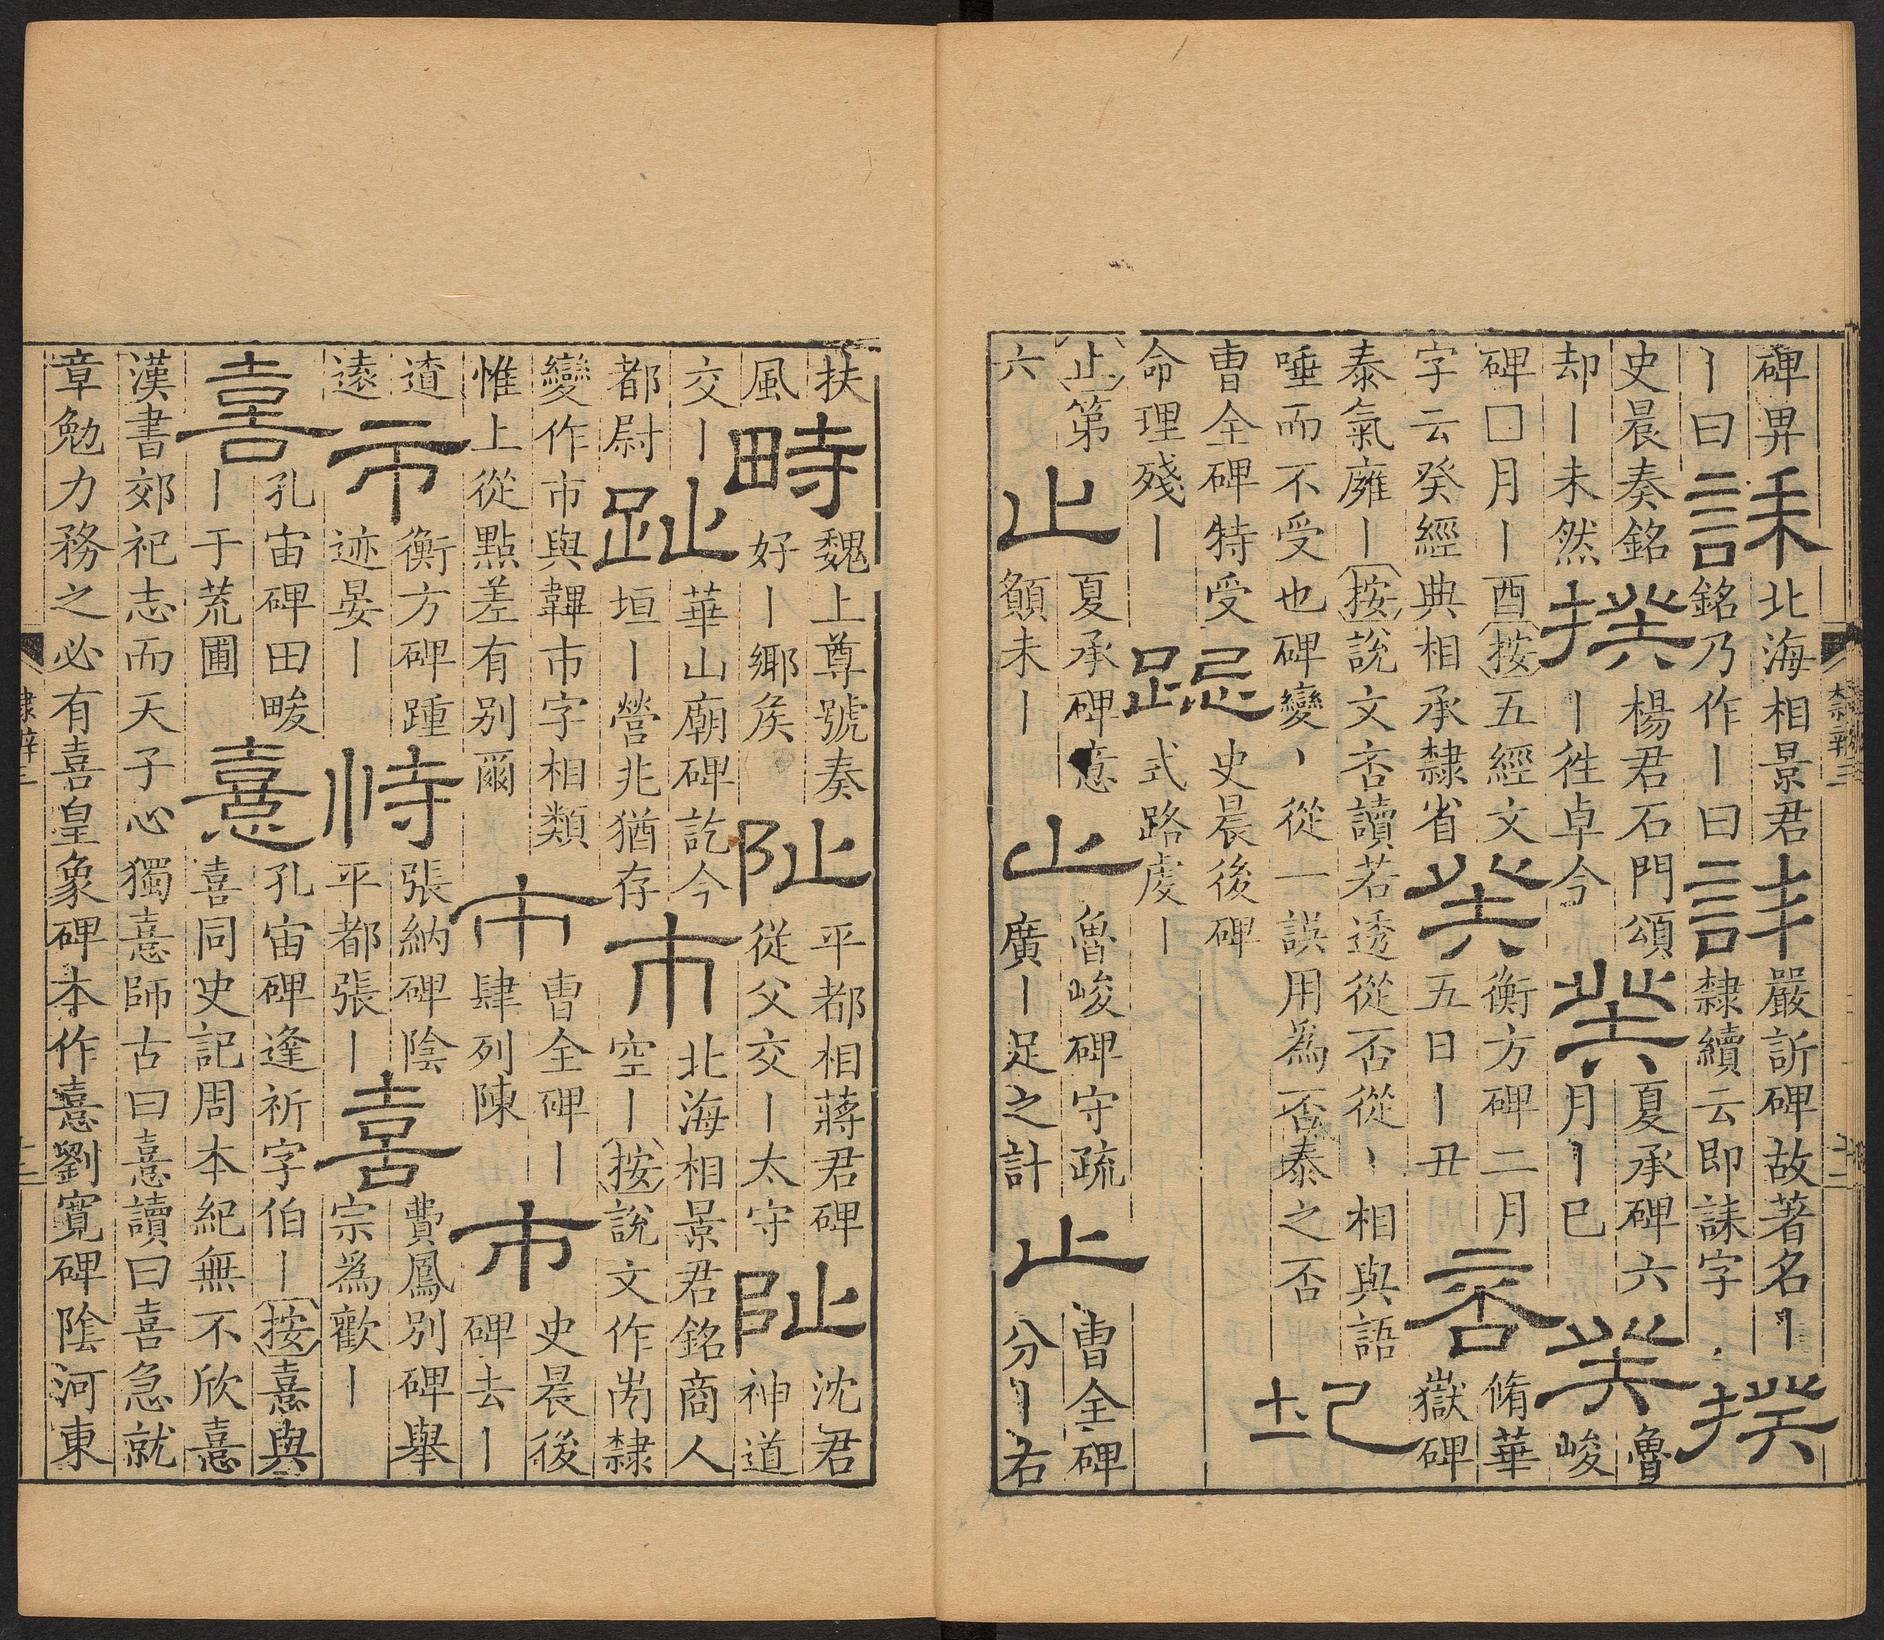 碑畀
丨曰
誄
北海相景君
銘乃作丨曰
誄
嚴訢碑故著名丨
隸續云即誄字
揆
史晨奏銘
却丨未然
揆
楊君石門頌
丨徃卓今
癸
夏承碑六
月丨巳
癸
魯
峻
碑□月丨酉按五經文
字云癸經典相承隸省
癸
衡方碑二月
五日丨丑
否
脩華
嶽碑
泰氣廱丨按說文否讀若透從否從丶相與語
唾而不受也碑變丶從一誤用為否泰之否
圮
曹全碑特受
命理殘丨
跽
史晨後碑
式路虔丨
止第
六
止
夏承碑意
顡未丨
止
魯峻碑守疏
廣丨足之計
止
曹全碑
分丨右
隸辨三
十二
扶
風
畤
魏上尊號奏
好丨鄉矦
阯
平都相蔣君碑
從父交丨太守
阯
沈君
神道
交丨
都尉
趾
華山廟碑訖今
垣丨營兆猶存
市
北海相景君銘商人
空丨按說文作岇隸
變作市與韠巿字相類
惟上從點差有别爾
市
曹全碑丨
肆列陳
市
史晨後
碑去丨
遒
遠
市
衡方碑踵
迹晏丨
恃
張納碑陰
平都張丨
喜
費鳳別碑舉
宗爲歡丨
喜
孔宙碑田畯
丨于荒圃
憙
孔宙碑逢祈字伯丨按憙與
喜同史記周本紀無不欣憙
漢書郊祀志而天子心獨憙師古曰憙讀曰喜急就
章勉力務之必有喜皇象碑本作憙劉寬碑陰河東